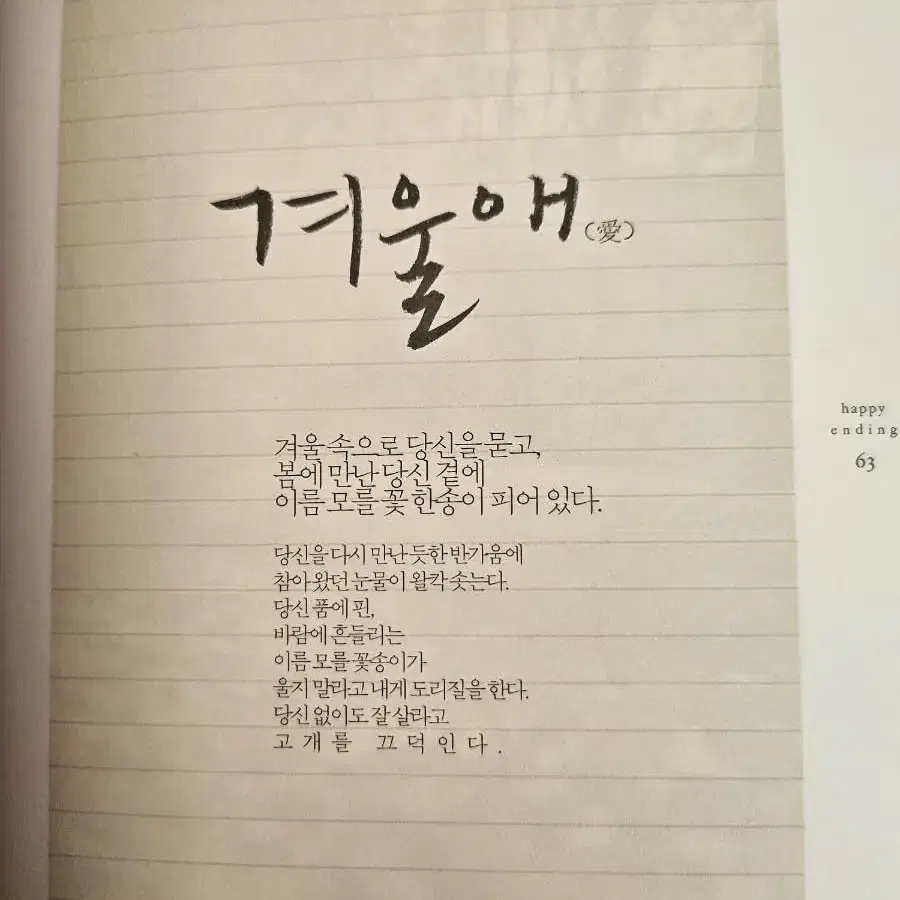 겨울애(愛)
겨울 속으로 당신을 묻고,
봄에 만난 당신 곁에
이름 모를 꽃 한송이 피어 있다.
당신을 다시 만난 듯한 반가움에
참아 왔던 눈물이 왈칵 솟는다.
당신 품에 핀,
바람에 흔들리는
이름 모를 꽃송이가
울지 말라고 내게 도리질을 한다.
당신 없이도 잘 살라고
고개를 끄덕인다.
happy
ending
63